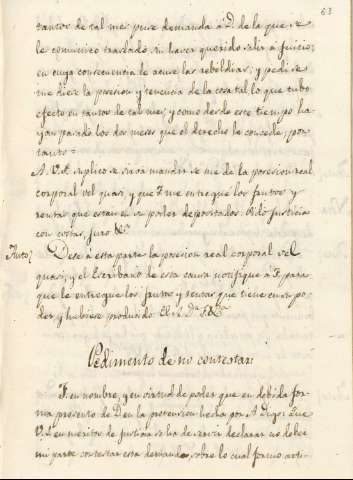 63
tantos de tal mes puse demanda á D. de la que se
le comunico traslado, sin haver querido salir á juicio;
en cuya consecuencia le acuse las rebeldias, y pedi se
me diese la posesion y tenencia de la cosa tal, lo que tubo
efecto en tantos de tal mes, y como desde este tiempo ha-
yan pasado los dos meses que el derecho le concede, por
tanto =
A V.S. suplico se sirva mandar se me dé la posesion real
corporal vel quasi, y que F. me entregue los frutos y
rentas que estan en su poder depositados. Pido justicia
con costas, juro &c.
Auto
Dese á esta parte la posesion real corporal vel
quasi, y el Escribano de esta causa notifique á F. para
que le entregue los frutos y rentas que tiene en su po-
der y hubiese producido. El S. D.n F. &c.
Pedimento de no contestar
F. en nombre, y en virtud de poder que en debida for-
ma presento de D. en la pretension hecha por A. Digo: Que
V.S. en meritos de justicia se ha de servir declarar no deber
mi parte contestar esta demanda, sobre lo cual formo arti-